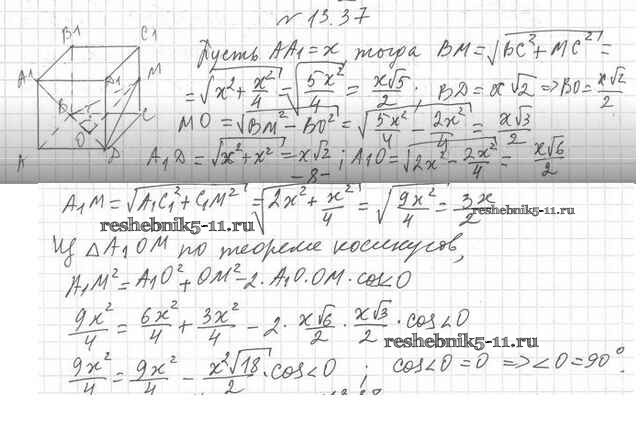 № 13.37
B1 C1
A1 D1 M
B C
O
A D
Пусть AA₁ = x, тогда BM = √(BC² + MC²) =
= √(x² + x²/4) = √(5x²/4) = x√5/2, BD = x√2 ⇒ BO = x√2/2
MO = √(BM² − BO²) = √(5x²/4 − 2x²/4) = x√3/2
A₁D = √(x² + x²) = x√2; A₁O = √(2x² − 2x²/4) = x√6/2
-8-
A₁M = √(A₁C₁² + C₁M²) = √(2x² + x²/4) = √(9x²/4) = 3x/2
reshebnik5-11.ru reshebnik5-11.ru
Из △A₁OM по теореме косинусов,
A₁M² = A₁O² + OM² − 2·A₁O·OM·cos∠O
9x²/4 = 6x²/4 + 3x²/4 − 2·x√6/2·x√3/2·cos∠O
reshebnik5-11.ru
9x²/4 = 9x²/4 − x²√18/2·cos∠O; cos∠O = 0 ⇒ ∠O = 90°.